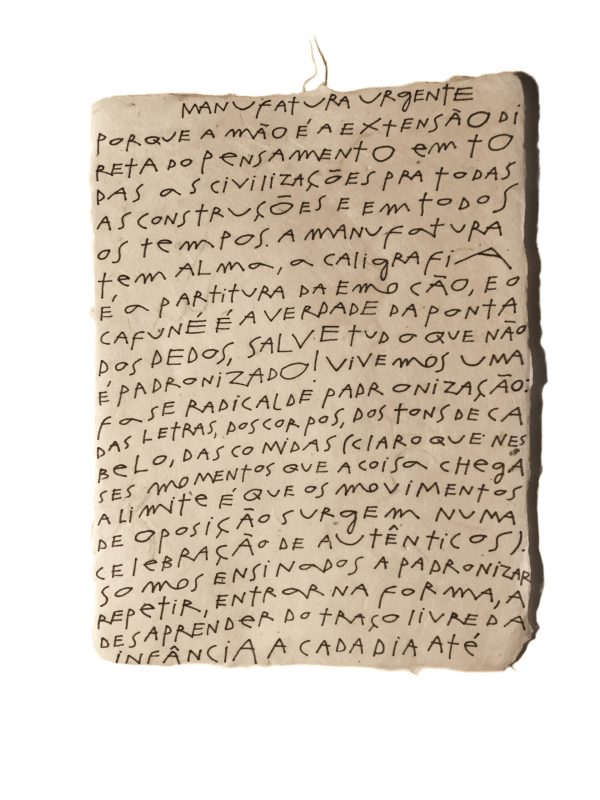 MANUFATURA URGENTE
PORQUE A MÃO É A EXTENSÃO DI
RETA DO PENSAMENTO EM TO
DAS AS CIVILIZAÇÕES PRA TODAS
AS CONSTRUÇÕES E EM TODOS
OS TEMPOS. A MANUFATURA
TEM ALMA, A CALIGRAFIA
É A PARTITURA DA EMOÇÃO, E O
CAFUNÉ É A VERDADE DA PONTA
DOS DEDOS, SALVE TUDO O QUE NÃO
É PADRONIZADO! VIVEMOS UMA
FASE RADICAL DE PADRONIZAÇÃO:
DAS LETRAS, DOS CORPOS, DOS TONS DE CA
BELO, DAS COMIDAS (CLARO QUE NES
SES MOMENTOS QUE A COISA CHEGA
A LIMITE É QUE OS MOVIMENTOS
DE OPOSIÇÃO SURGEM NUMA
CELEBRAÇÃO DE AUTÊNTICOS).
SOMOS ENSINADOS A PADRONIZAR
REPETIR, ENTRAR NA FORMA, A
DESAPRENDER DO TRAÇO LIVRE DA
INFÂNCIA A CADA DIA ATÉ